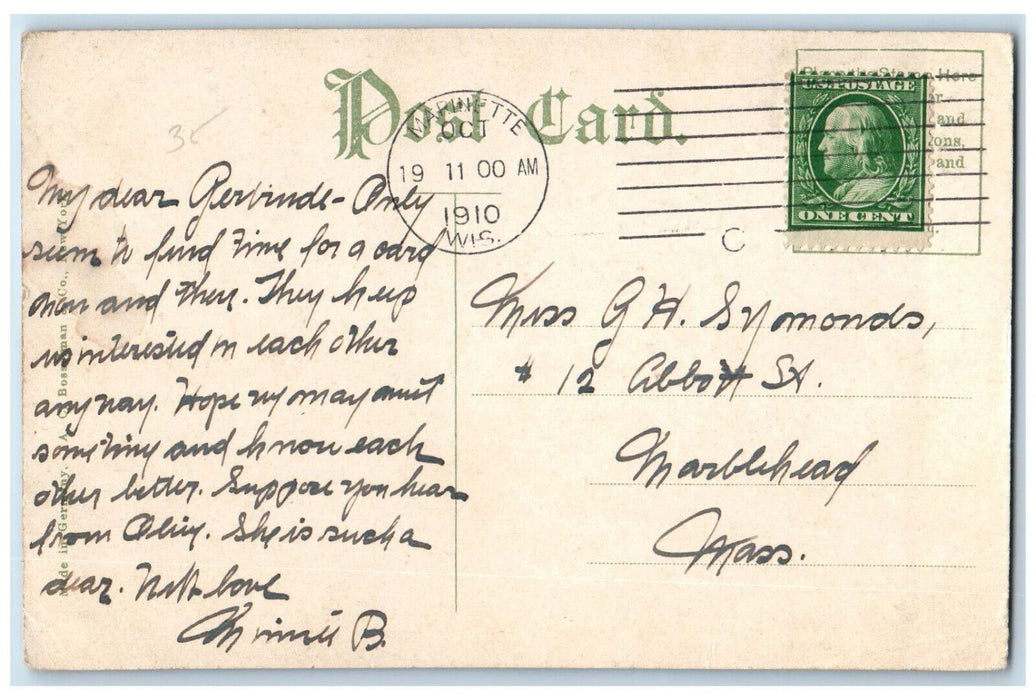 Post Card.
Place the Stamp Here
and
ons,
and
U.S. POSTAGE
ONE CENT
MARINETTE
OCT
19 11 00 AM
1910
WIS.
C
35
My dear Gertrude - Only
seem to find time for a card
now and then. They keep
us interested in each other
anyway. Hope we may meet
sometime and know each
other better. Suppose you hear
from Olive. She is such a
dear. With love
Minnie B.
Miss G H. Symonds,
# 12 Abbott St.
Marblehead
Mass.
Made in Germany. A. C. Bosselman & Co., New York